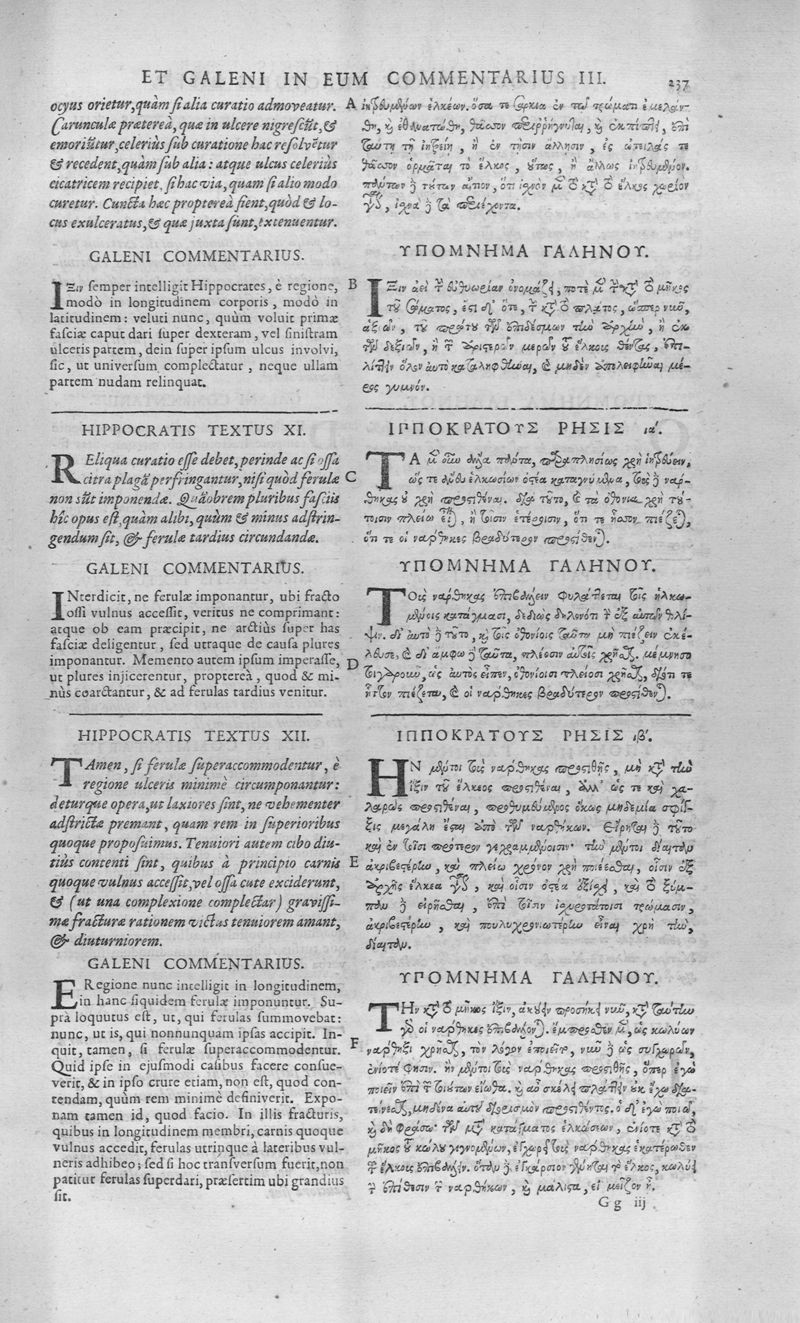 ET GALENI IN EUM COMMENTARIUS III. 237
ocyus orietur, quàm si alia curatio admoveatur.
Carunculæ prætereà, quæ in ulcere nigrescũt, &
emoriũtur, celeriùs sub curatione hac resolvẽtur
& recedent, quàm sub alia: atque ulcus celeriùs
cicatricem recipiet, si hac via, quam si alio modo
curetur. Cuncta hæc proptereà fient, quòd & lo-
cus exulceratus, & quæ juxta sunt, extenuentur.
GALENI COMMENTARIUS.
IΞιν semper intelligit Hippocrates, è regione,
modò in longitudinem corporis, modò in
latitudinem: veluti nunc, quùm voluit primæ
fasciæ caput dari super dexteram, vel sinistram
ulceris partem, dein super ipsum ulcus involvi,
sic, ut universum complectatur, neque ullam
partem nudam relinquat.
HIPPOCRATIS TEXTUS XI.
REliqua curatio esse debet, perinde ac si ossa
citra plagã perfringantur, nisi quòd ferulæ
non sũt imponendæ. Quãobrem pluribus fasciis
hîc opus est, quàm alibi, quùm & minus adstrin-
gendum sit, & ferulæ tardius circundandæ.
GALENI COMMENTARIUS.
INterdicit, ne ferulæ imponantur, ubi fracto
ossi vulnus accessit, veritus ne comprimant:
atque ob eam præcipit, ne arctiùs super has
fasciæ deligentur, sed utraque de causa plures
imponantur. Memento autem ipsum imperasse,
ut plures injicerentur, proptereà, quod & mi-
nùs coarctantur, & ad ferulas tardius venitur.
HIPPOCRATIS TEXTUS XII.
TAmen, si ferulæ superaccommodentur, è
regione ulceris minimè circumponantur:
deturque opera, ut laxiores sint, ne vehementer
adstrictæ premant, quam rem in superioribus
quoque proposuimus. Tenuiori autem cibo diu-
tiùs contenti sint, quibus à principio carnis
quoque vulnus accessit, vel ossa cute exciderunt,
& (ut una complexione complectar) gravissi-
mæ fracturæ rationem victus tenuiorem amant,
& diuturniorem.
GALENI COMMENTARIUS.
E Regione nunc intelligit in longitudinem,
in hanc siquidem ferulæ imponuntur. Su-
prà loquutus est, ut, qui ferulas summovebat:
nunc, ut is, qui nonnunquam ipsas accipit. In-
quit, tamen, si ferulæ superaccommodentur.
Quid ipse in ejusmodi casibus facere consue-
verit, & in ipso crure etiam, non est, quod con-
tendam, quùm rem minimè definiverit. Expo-
nam tamen id, quod facio. In illis fracturis,
quibus in longitudinem membri, carnis quoque
vulnus accedit, ferulas utrinque à lateribus vul-
neris adhibeo; sed si hoc transversum fuerit, non
patitur ferulas superdari, præsertim ubi grandius
sit.
A ἰητρευμένων ἑλκέων. ὅσα τε σαρκία ἐν τῷ τρώματι ἐμελάν-
θη, καὶ ἐθανατώθη, θᾶσσον περιρρήγνυται, καὶ ἐκπίπτει, ἐπὶ
ταύτῃ τῇ ἰητρείῃ, ἢ ἐν τῇσιν ἄλλῃσιν, ἐς ὠτειλάς τε
θᾶσσον ὁρμᾶται τὸ ἕλκος, οὕτως, ἢ ἄλλως ἰητρευμένον.
πάντων δὲ τούτων αἴτιον, ὅτι ἰσχνὸν μὲν τὸ κατὰ τὸ ἕλκος χωρίον
γίνεται, ἰσχνὰ δὲ τὰ περιέχοντα.
ΥΠΟΜΝΗΜΑ ΓΑΛΗΝΟΥ.
B ΙΞιν ἀεὶ τὴν εὐθυωρίαν ὀνομάζει, ποτὲ μὲν τὴν κατὰ τὸ μῆκος
τοῦ σώματος, ἔστι δ' ὅτε, τὴν κατὰ τὸ πλάτος, ὥσπερ νῦν,
ἀξιῶν, τοῦ πρώτου τῶν ἐπιδέσμων τὴν ἀρχὴν, ἢ ἐκ
τῶν δεξιῶν, ἢ τῶν ἀριστερῶν μερῶν τοῦ ἕλκους θέντας,
ὅλον αὐτὸ καταληφθῆναι, καὶ μηδὲν ἀπολειφθῆναι μέ-
ρος γυμνόν.
ΙΠΠΟΚΡΑΤΟΥΣ ΡΗΣΙΣ ια'.
ΤΑ μὲν οὖν ἄλλα πάντα, παραπλησίως χρὴ ἰητρεύειν,
C ὥς τε ἄνευ ἑλκωσίων ὀστέα καταγνύμενα, τοὺς δὲ νάρ-
θηκας οὐ χρὴ προστιθέναι. διὰ τοῦτο, καὶ τὰ ὀθόνια χρὴ τού-
τοισιν πλείω εἶναι, ἢ τοῖσιν ἑτέροισιν, ὅτι τε ἧσσον πιέζεται,
ὅτι τε οἱ νάρθηκες βραδύτερον προστίθενται.
ΥΠΟΜΝΗΜΑ ΓΑΛΗΝΟΥ.
ΤΟὺς νάρθηκας ἐπιβάλλειν φυλάττεται τοῖς ἡλκω-
μένοις κατάγμασι, δεδιὼς δηλονότι τὴν ἐξ αὐτῶν θλί-
ψιν. δι' αὐτὸ δὲ τοῦτο, καὶ τοῖς ὀθονίοις ταῦτα μὴ πιέζειν ἐκέ-
λευσε, καὶ δι' ἄμφω ταῦτα, πλέοσιν αὐτοῖς χρῆσθαι. μέμνησο
D τοιγαροῦν, ὡς αὐτὸς εἶπεν, ὀθονίοισι πλείοσι χρῆσθαι, διότι τε
ἧττον πιέζεται, καὶ οἱ νάρθηκες βραδύτερον προστίθενται.
ΙΠΠΟΚΡΑΤΟΥΣ ΡΗΣΙΣ ιβ'.
ΗΝ μέντοι τοὺς νάρθηκας προστιθῇς, μὴ κατὰ τὴν
ἴξιν τοῦ ἕλκεος προστιθέναι, ἀλλ' ὥς τε καὶ χα-
λαρῶς προστιθέναι, προθυμεύμενος ὅκως μηδεμία σφίγ-
ξις μεγάλη ἔσται ἀπὸ τῶν ναρθήκων. εἴρηται δὲ τοῦτο
καὶ ἐν τοῖσι πρότερον γεγραμμένοισιν. τὴν μέντοι δίαιταν
E ἀκριβεστέρην, καὶ πλείω χρόνον χρὴ ποιέεσθαι, οἷσιν ἐξ
ἀρχῆς ἕλκεα γίνεται, καὶ οἷσιν ὀστέα ἐξίσχει, καὶ τὸ ξύμ-
παν δὲ εἰρῆσθαι, ἐπὶ τοῖσιν ἰσχυροτάτοισι τρώμασιν,
ἀκριβεστέρην, καὶ πουλυχρονιωτέρην εἶναι χρὴ τὴν
δίαιταν.
ΥΠΟΜΝΗΜΑ ΓΑΛΗΝΟΥ.
ΤΗν κατὰ τὸ μῆκος ἴξιν, ἀκούειν προσήκει νῦν, κατὰ ταύτην
γὰρ οἱ νάρθηκες ἐπιβάλλονται. ἔμπροσθεν μὲν, ὡς κωλύων
F νάρθηξι χρῆσθαι, τὸν λόγον ἐποιεῖτο, νῦν δὲ ὡς συγχωρῶν,
ἐνίοτέ φησιν. ἢν μέντοι τοὺς νάρθηκας προστιθῇς, ὅπερ ἐγὼ
ποιεῖν ἐπὶ τῶν τοιούτων εἴωθα. οὐκ ἔχω δια-
τείνεσθαι, μηδένα αὐτοῦ διορισμὸν προστιθέντος. ὃ δ' ἐγὼ ποιῶ,
καὶ δὴ φράσω· τῶν μετὰ κατάγματος ἑλκώσεων, ἐνίοτε κατὰ τὸ
μῆκος τοῦ κώλου γιγνομένων, ἐγχωρεῖ τοὺς νάρθηκας ἑκατέρωθεν
τοῦ ἕλκους ἐπιβάλλειν. ὅταν δὲ ἐγκάρσιον γένηται τὸ ἕλκος, κωλύει
τὴν ἐπίθεσιν τῶν ναρθήκων, καὶ μάλιστα, εἰ μεῖζον ᾖ.
G g iij